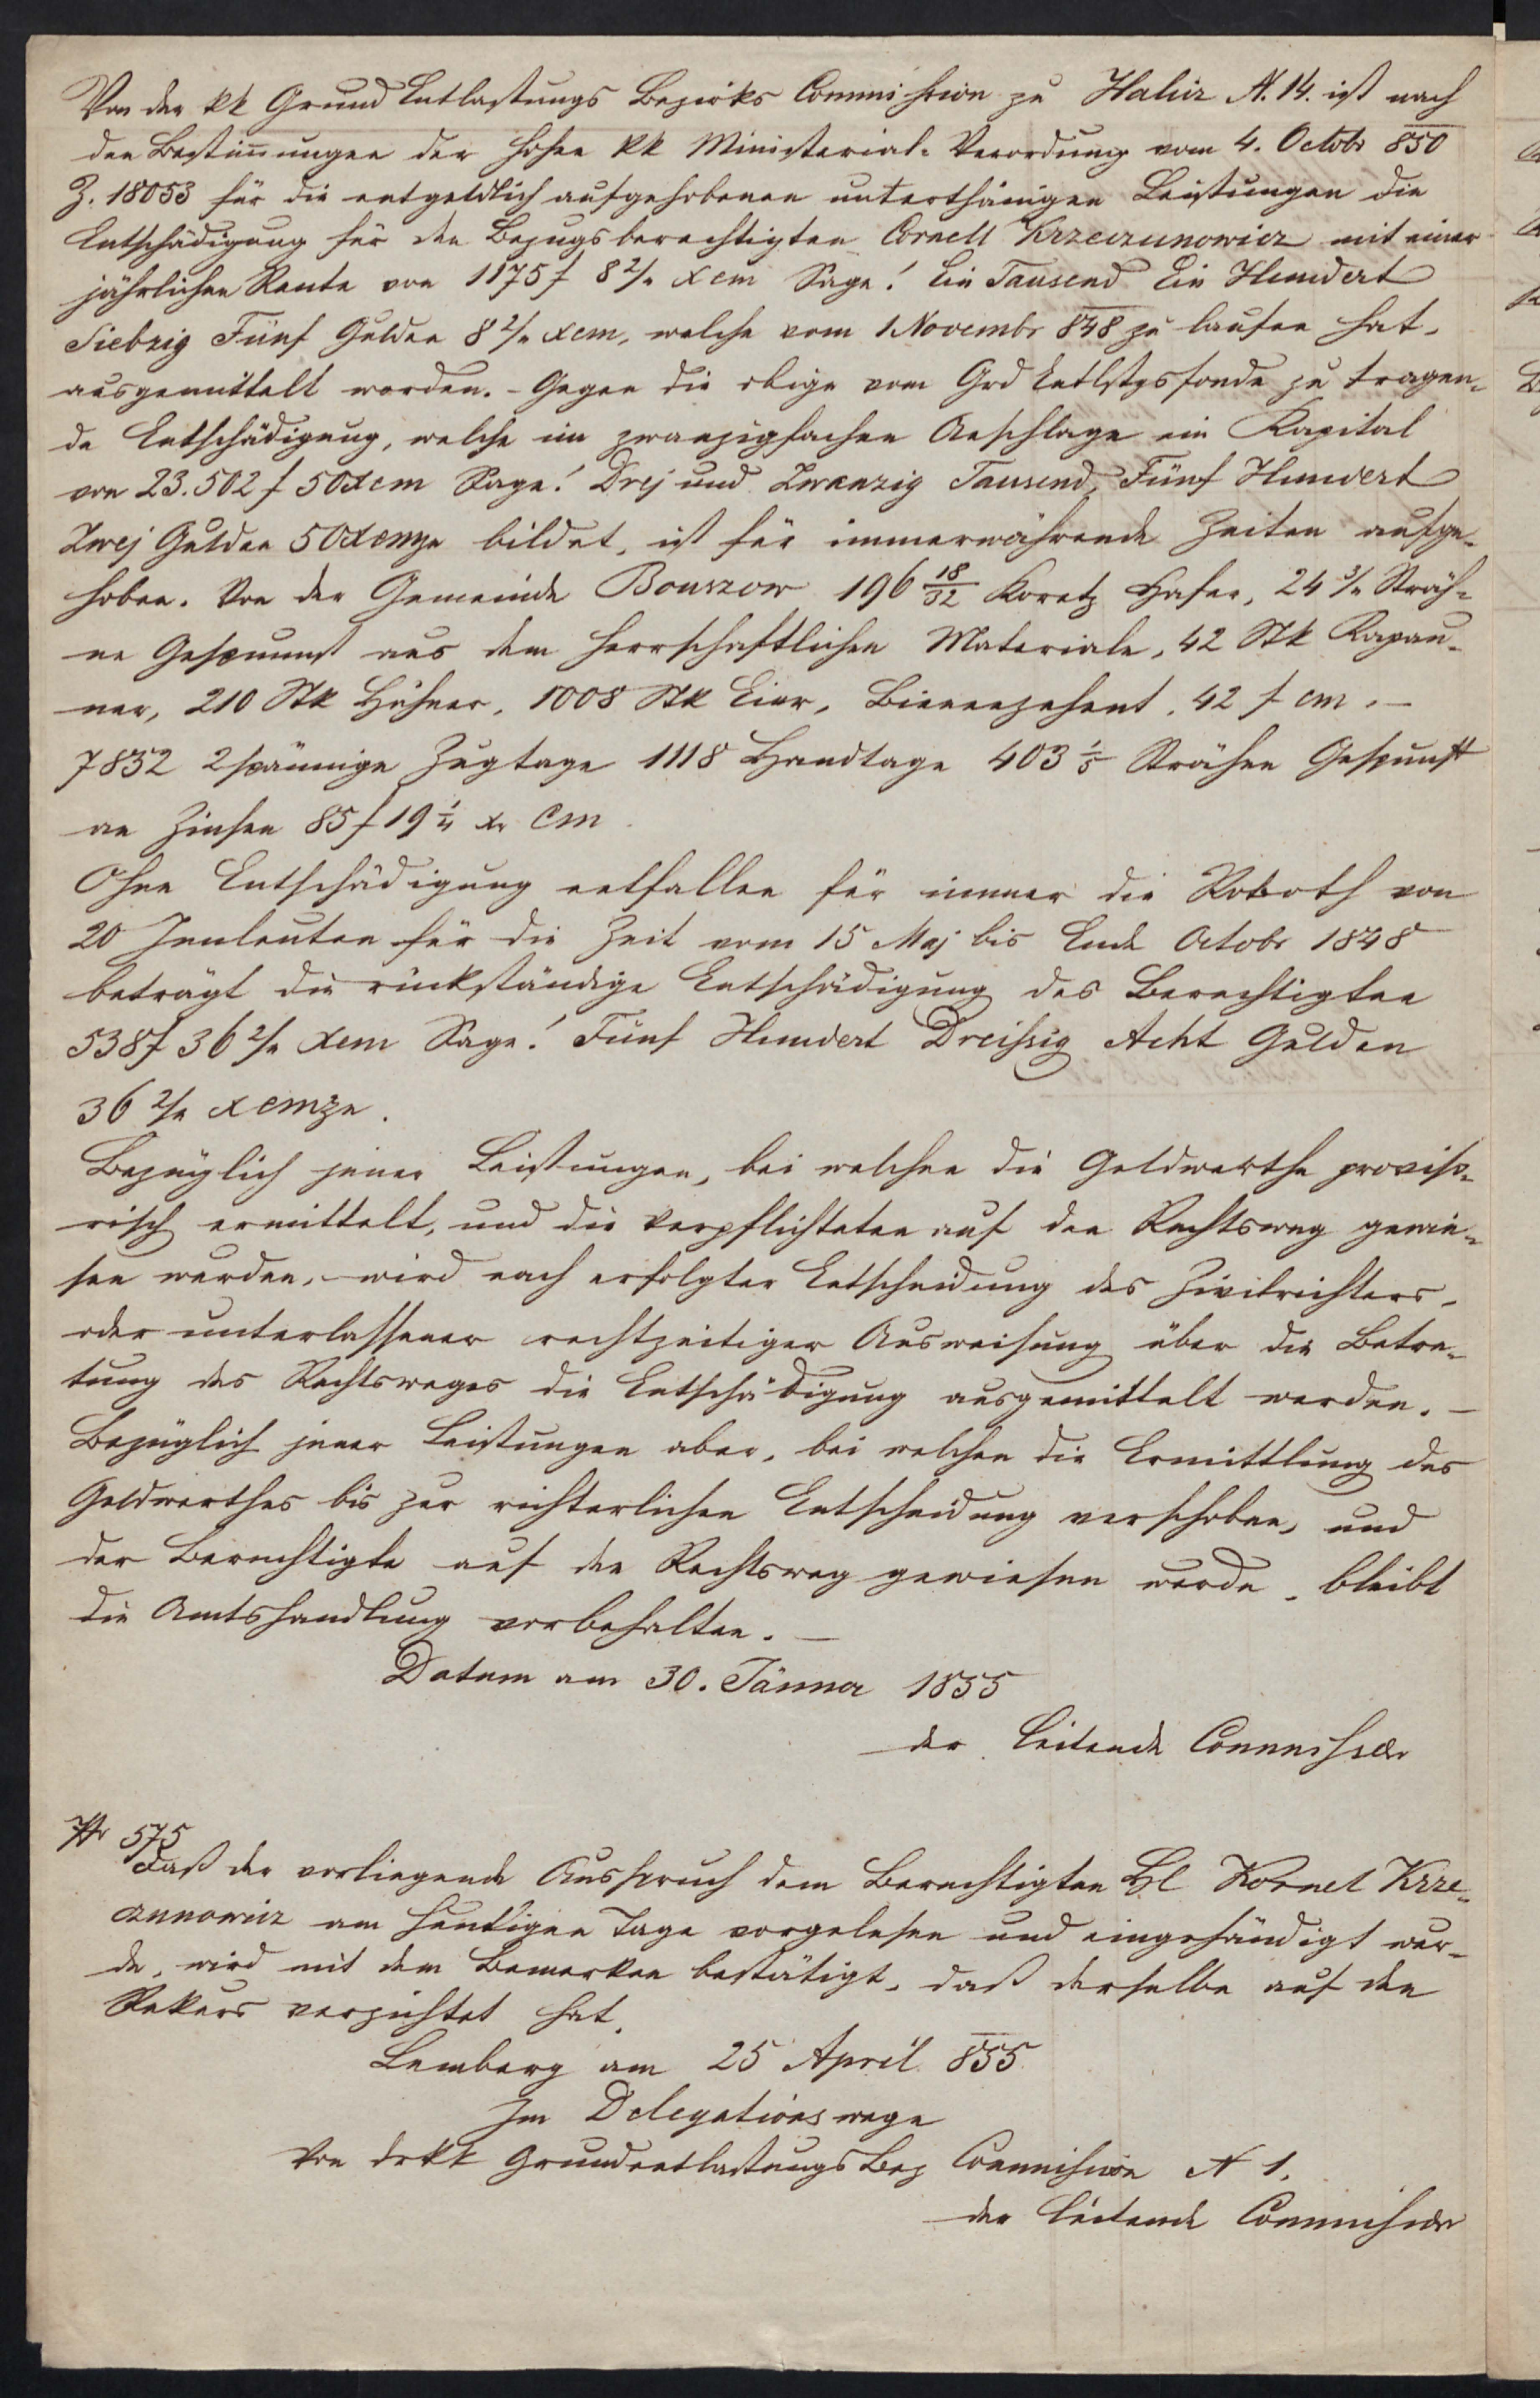 Von der kk Grund Entlastungs Bezirks Commission zu Halicz N. 14. ist nach
den Bestim̄ungen der hohen kk Ministerial- Verordnung vom 4. Octobr 850
Z. 18053 für die entgeldlich aufgehobenen unterthänigen Leistungen die
Entschädigung für den Bezugsberechtigten Cornell Krzeczunowicz mit einer
jährlichen Rente von 1175 f 8 2/4 xcm Sage! Ein Tausend Ein Hundert
Siebzig Fünf Gulden 8 2/4 xcm, welche vom 1 Novembr 848 zu laufen hat,
ausgemittelt worden. - Gegen die obige vom Grd Entlstgsfonde zu tragen-
de Entschädigung, welche im zwanzigfachen Anschlage ein Kapital
von 23.502 f 50 xcm Sage! Drej und Zwanzig Tausend, Fünf Hundert
Zwej Gulden 50 xcmze bildet, ist für immerwährende Zeiten aufge-
hoben. Von der Gemeinde Bouszow 196 18/32 Koretz Hafer, 24 3/4 Sträh-
ne Gespunst aus dem herrschaftlichen Materiale, 42 Stk Kapau-
ner, 210 Stk Hühner, 1008 Stk Eier, Bienenzehent, 42 f cm. -
7832 2spännige Zugtage 1118 Handtage 403 1/5 Strähne Gespunst
an Zinsen 85 f 19 1/4 xr Cm
Ohne Entschädigung entfallen für immer die Roboth von
20 Innleuten für die Zeit vom 15 Maj bis Ende Octobr 1848
beträgt die rückständige Entschädigung des Berechtigten
538 f 36 2/4 xcm Sage! Fünf Hundert Dreißig Acht Gulden
36 2/4 xcmze.
Bezüglich jener Leistungen, bei welchen die Geldwerthe proviso-
risch ermittelt, und die Verpflichteten auf den Rechtsweg gewie-
sen wurden, wird nach erfolgter Entscheidung des Zivilrichters,
oder unterlassener rechtzeitiger Ausweisung über die Betre-
tung des Rechtsweges die Entschädigung ausgemittelt werden. -
Bezüglich jener Leistungen aber, bei welchen die Ermittlung des
Geldwerthes bis zur richterlichen Entscheidung verschoben, und
der Berechtigte auf den Rechtsweg gewiesen wurde, bleibt
die Amtshandlung vorbehalten. -
Datum am 30. Jänner 1855
der Leitende Commissär
Nr 575
Daß der vorliegende Ausspruch dem Berechtigten Hl Kornel Krze-
czunowicz am heutigen Tage vorgelesen und eingehändigt wur-
de, wird mit dem Bemerken bestätigt, daß derselbe auf den
Rekurs verzichtet hat.
Lemberg am 25 April 855
Im Delegationswege
Von der kk Grundentlastungs Bez Commission N 1.
der Leitende Commissär